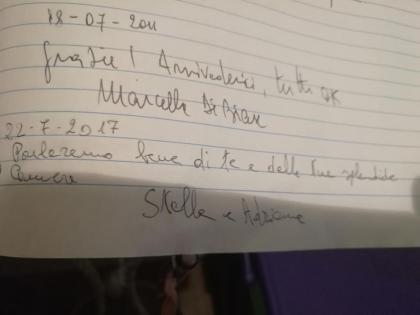 18-07-2011
Grazie! Arrivederci, tutti OK
Marcella
22-7-2017
Parleremo bene di te e delle tue splendide
Camere
Stella e Adriana